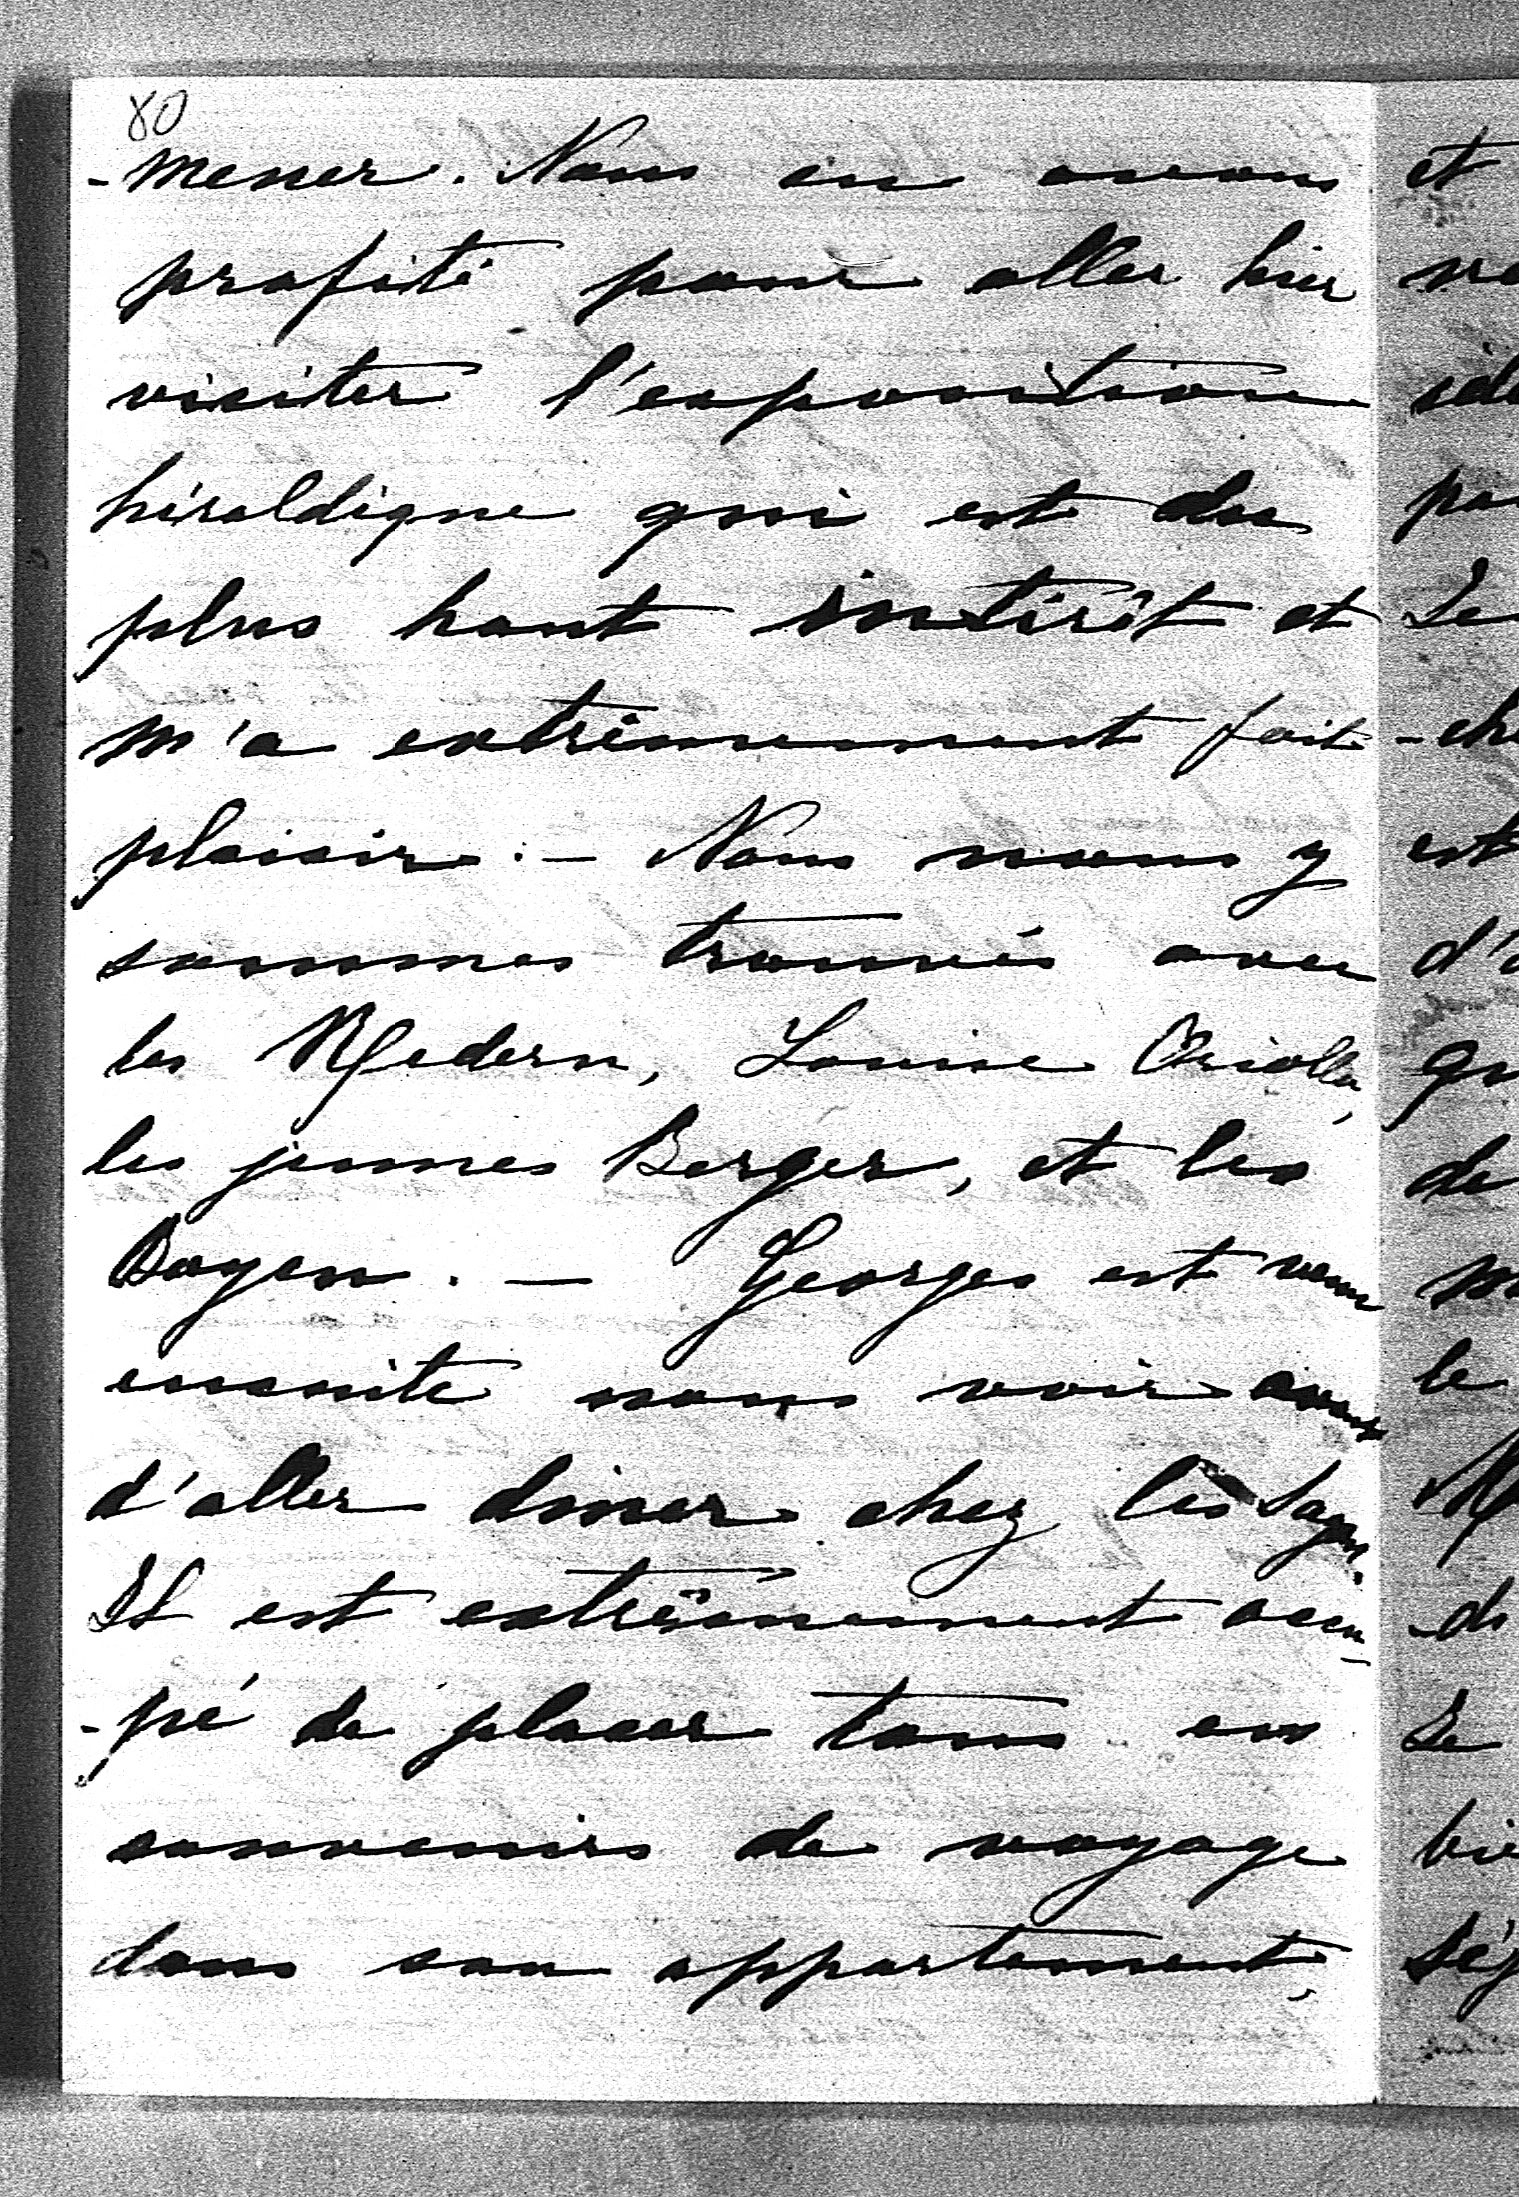 80
-mener. Nous en avons
profité pour aller hier
visiter l'exposition
héraldique qui est du
plus haut intérêt et
m'a extrêmement fait
plaisir. — Nous nous y
sommes trouvés avec
les Redern, Louise Oriolla,
les jeunes Berger, et les
Boyen. — Georges est venu
ensuite nous voir avant
d'aller diner chez les Sagan.
Il est extrêmement occu-
-pé de placer tous ses
souvenirs de voyage
dans son appartement,